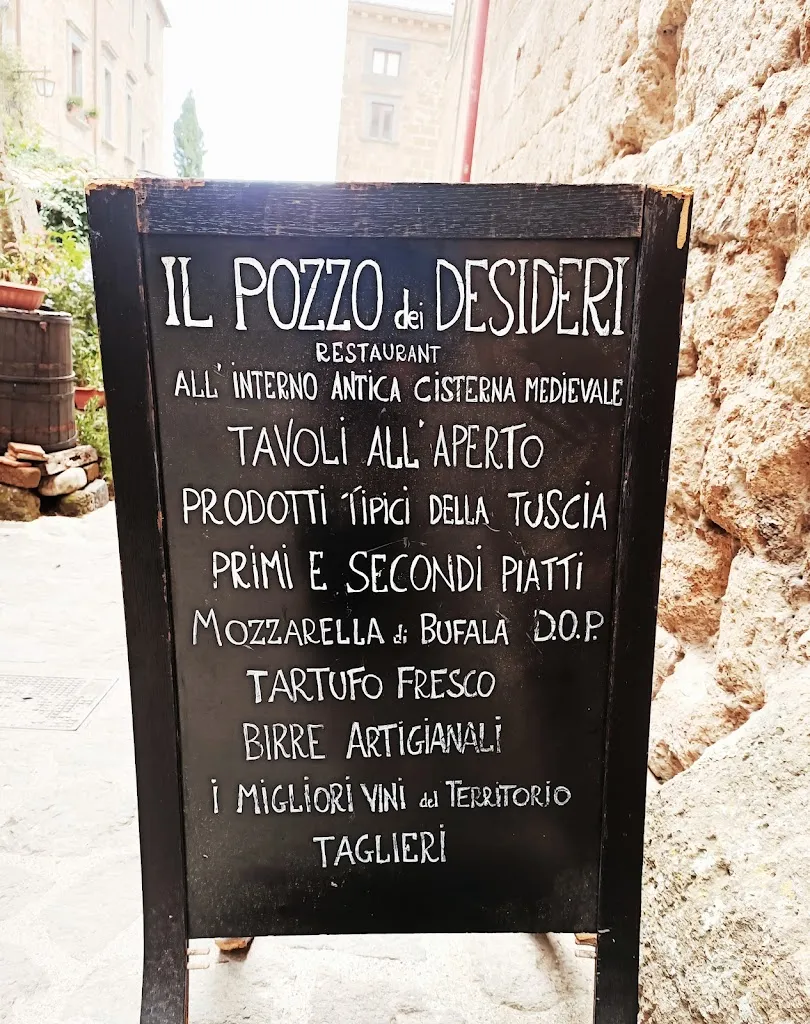 IL POZZO dei DESIDERI
RESTAURANT
ALL' INTERNO ANTICA CISTERNA MEDIEVALE
TAVOLI ALL'APERTO
PRODOTTI TIPICI DELLA TUSCIA
PRIMI E SECONDI PIATTI
MOZZARELLA di BUFALA D.O.P.
TARTUFO FRESCO
BIRRE ARTIGIANALI
I MIGLIORI VINI del TERRITORIO
TAGLIERI